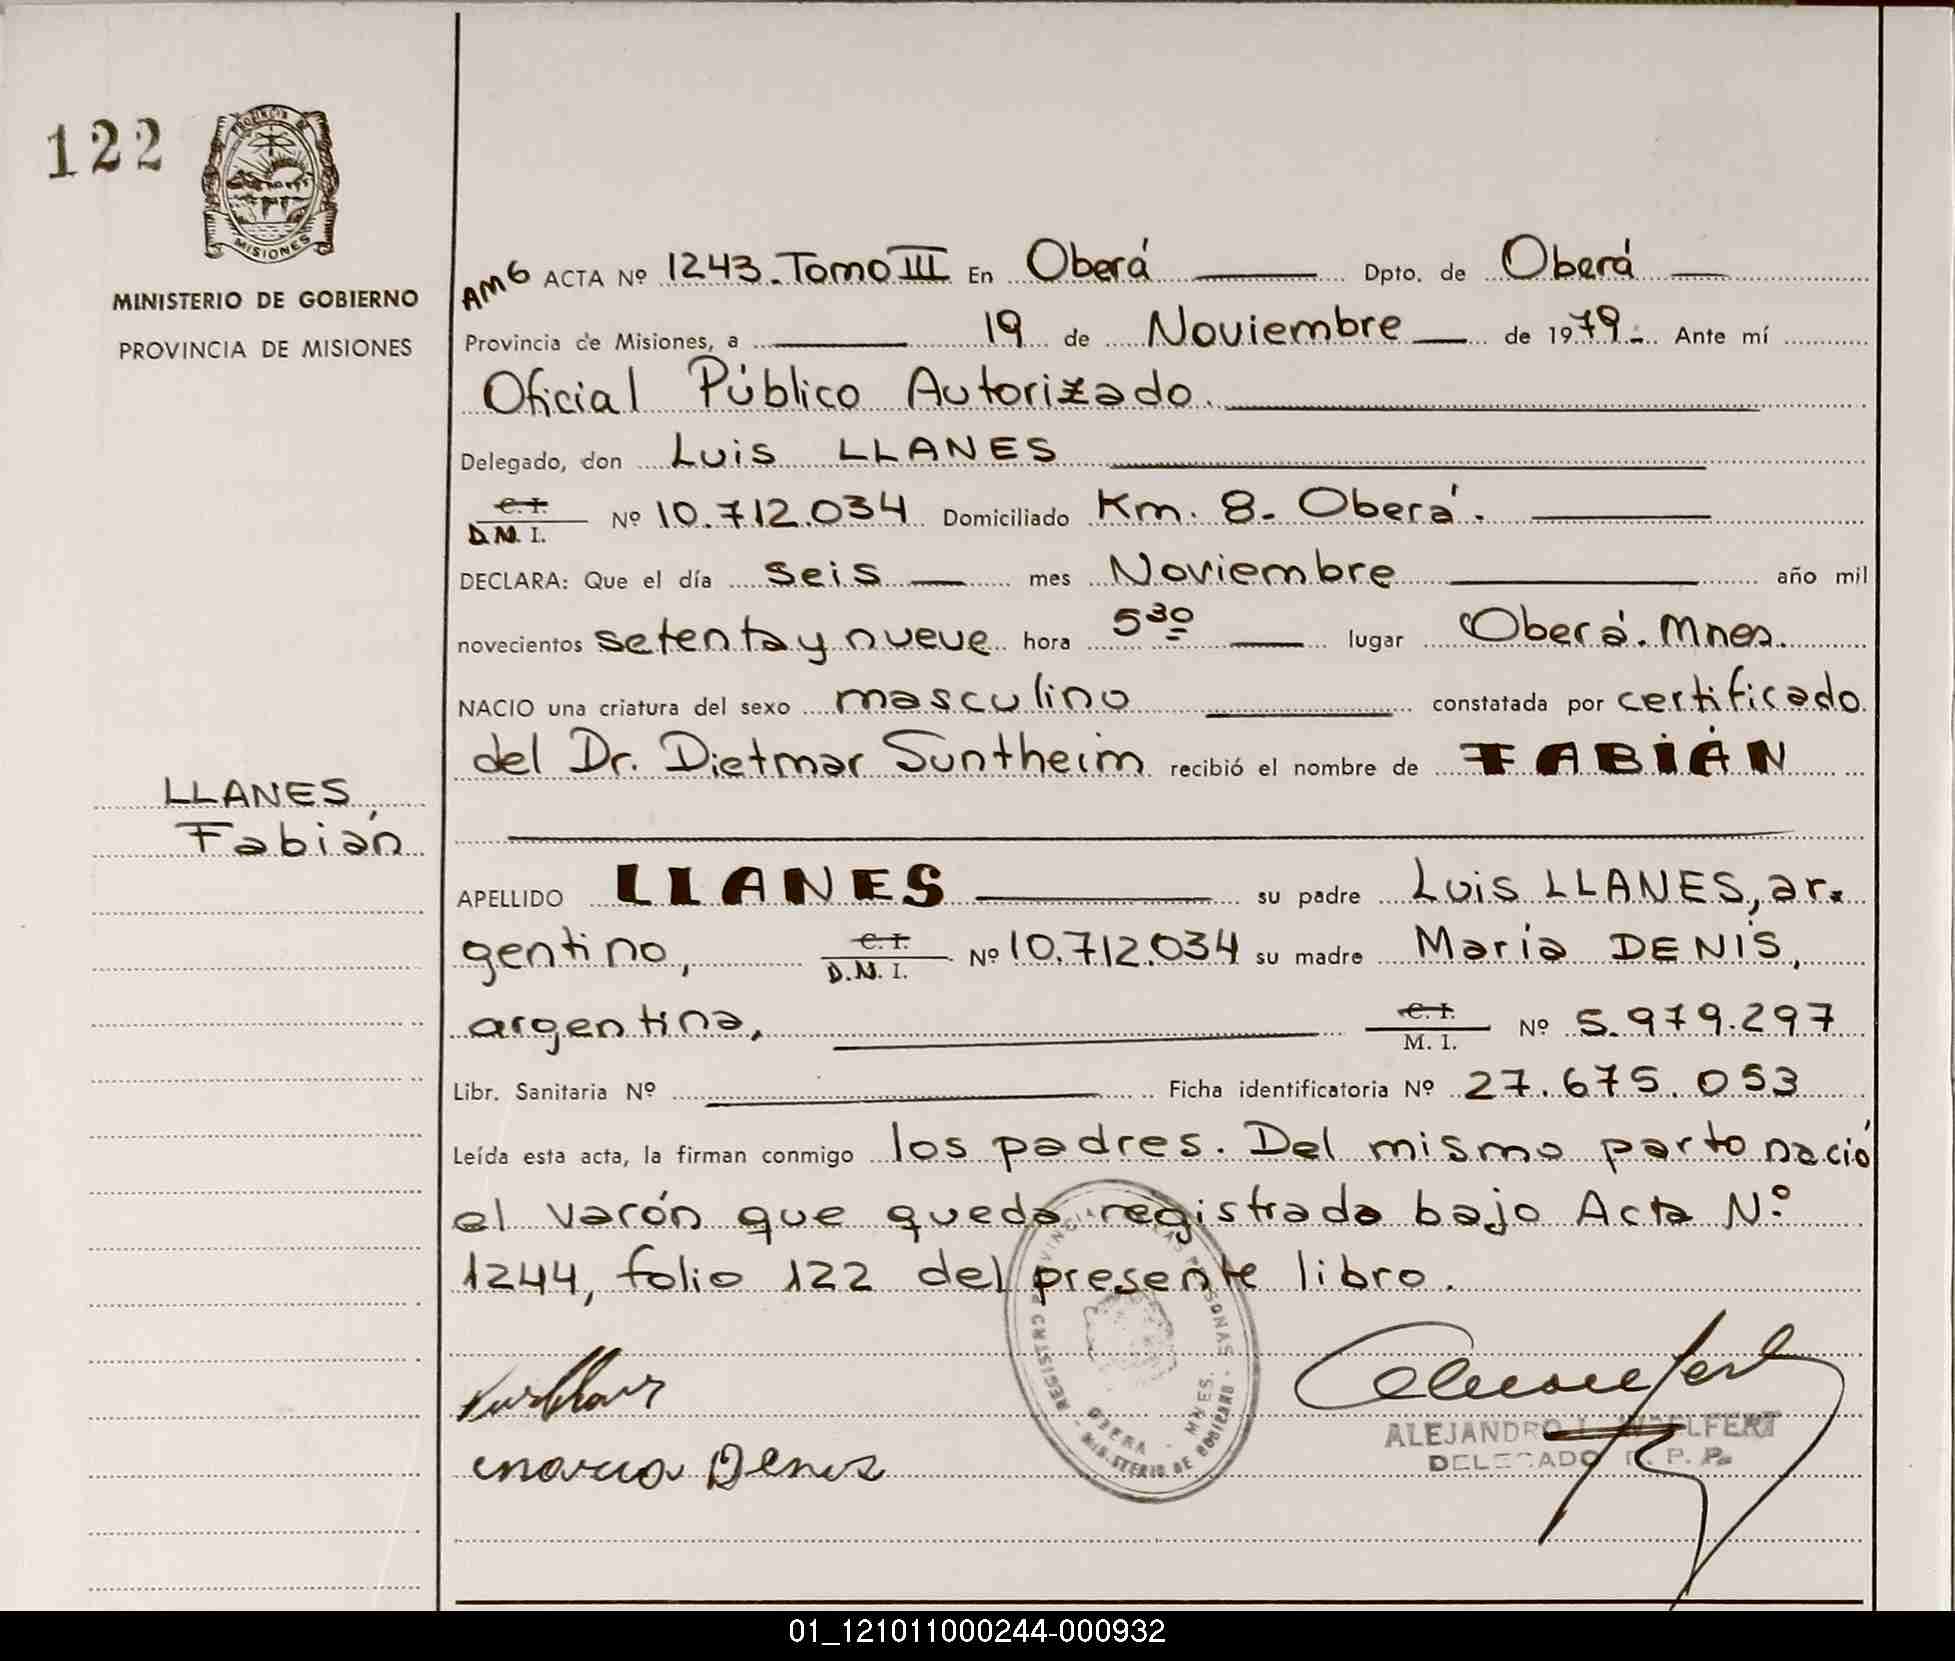 122
PROVINCIA DE
MISIONES
MINISTERIO DE GOBIERNO
PROVINCIA DE MISIONES
LLANES,
Fabián
AM6 ACTA Nº 1243. Tomo III En Oberá Dpto. de Oberá
Provincia de Misiones, a 19 de Noviembre de 1979. Ante mí
Oficial Público Autorizado.
Delegado, don Luis LLANES
C. I.
D.N.I. Nº 10.712.034 Domiciliado Km. 8. Oberá.
DECLARA: Que el día seis mes Noviembre año mil
novecientos setenta y nueve hora 5 30 lugar Oberá. Mnes.
NACIO una criatura del sexo masculino constatada por certificado
del Dr. Dietmar Suntheim recibió el nombre de FABIÁN
APELLIDO LLANES su padre Luis LLANES, ar-
gentino, C. I.
D.N.I. Nº 10.712.034 su madre María DENIS,
argentina, C. I.
M. I. Nº 5.979.297
Libr. Sanitaria Nº Ficha identificatoria Nº 27.675.053
Leída esta acta, la firman conmigo los padres. Del mismo parto nació
el varón que queda registrado bajo Acta Nº
1244, folio 122 del presente libro.
Maria Denis
ALEJANDRO L. WOLFERT
DELEGADO R. P. P.
OBERA - MNES.
MINISTERIO DE GOBIERNO
01_121011000244-000932